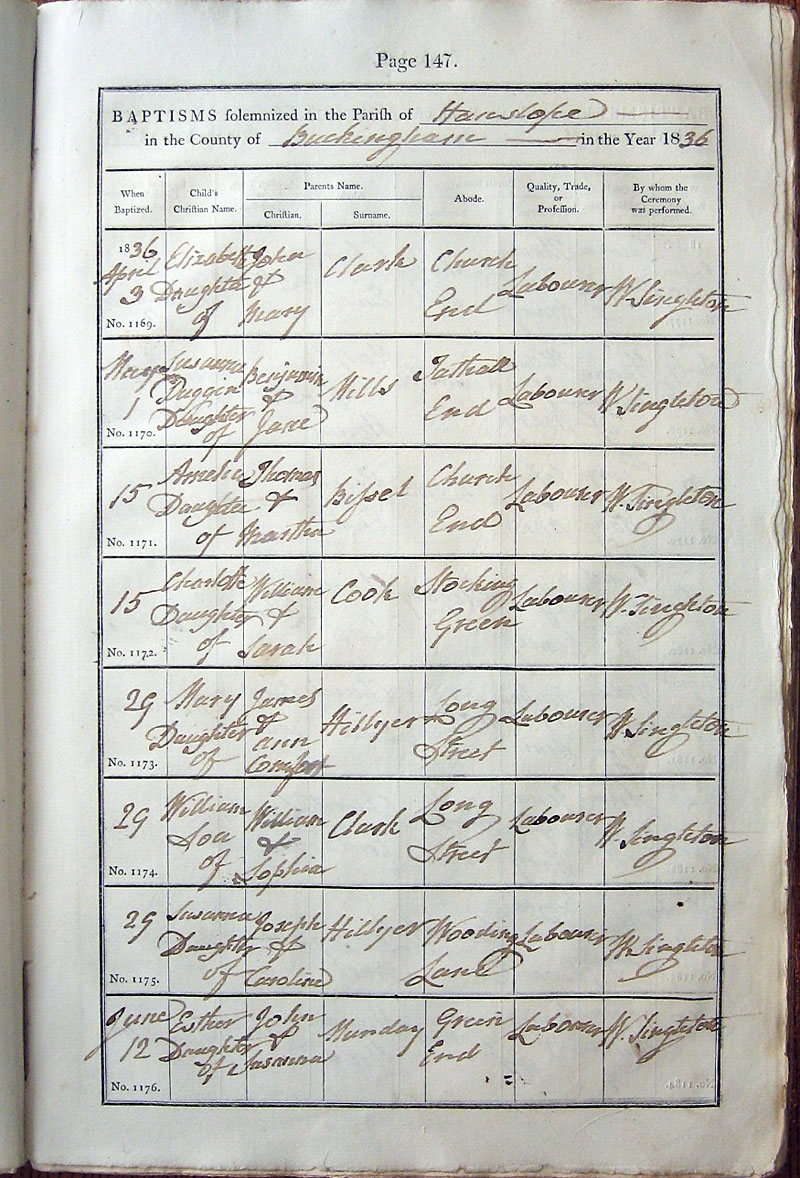 Page 147.
BAPTISMS solemnized in the Parish of Hanslope
in the County of Buckingham in the Year 1836
When Baptized. Child's Christian Name. Parents Name. Abode. Quality, Trade, or Profession. By whom the Ceremony was performed.
Christian. Surname.
1836 April 3 Elizabeth Daughter of John & Mary Clark Church End Labourer W. Singleton
No. 1169.
May 1 Susanna Duggin Daughter of Benjamin & Jane Mills Tathall End Labourer W. Singleton
No. 1170.
15 Amelia Daughter of Thomas & Martha Bissel Church End Labourer W. Singleton
No. 1171.
15 Charlotte Daughter of William & Sarah Cook Stocking Green Labourer W. Singleton
No. 1172.
29 Mary Daughter of James & Ann Comfort Hillyer Long Street Labourer W. Singleton
No. 1173.
29 William Son of William & Sophia Clark Long Street Labourer W. Singleton
No. 1174.
29 Susanna Daughter of Joseph & Caroline Hillyer Wooding Lane Labourer W. Singleton
No. 1175.
June 12 Esther Daughter of John & Susanna Munday Green End Labourer W. Singleton
No. 1176.